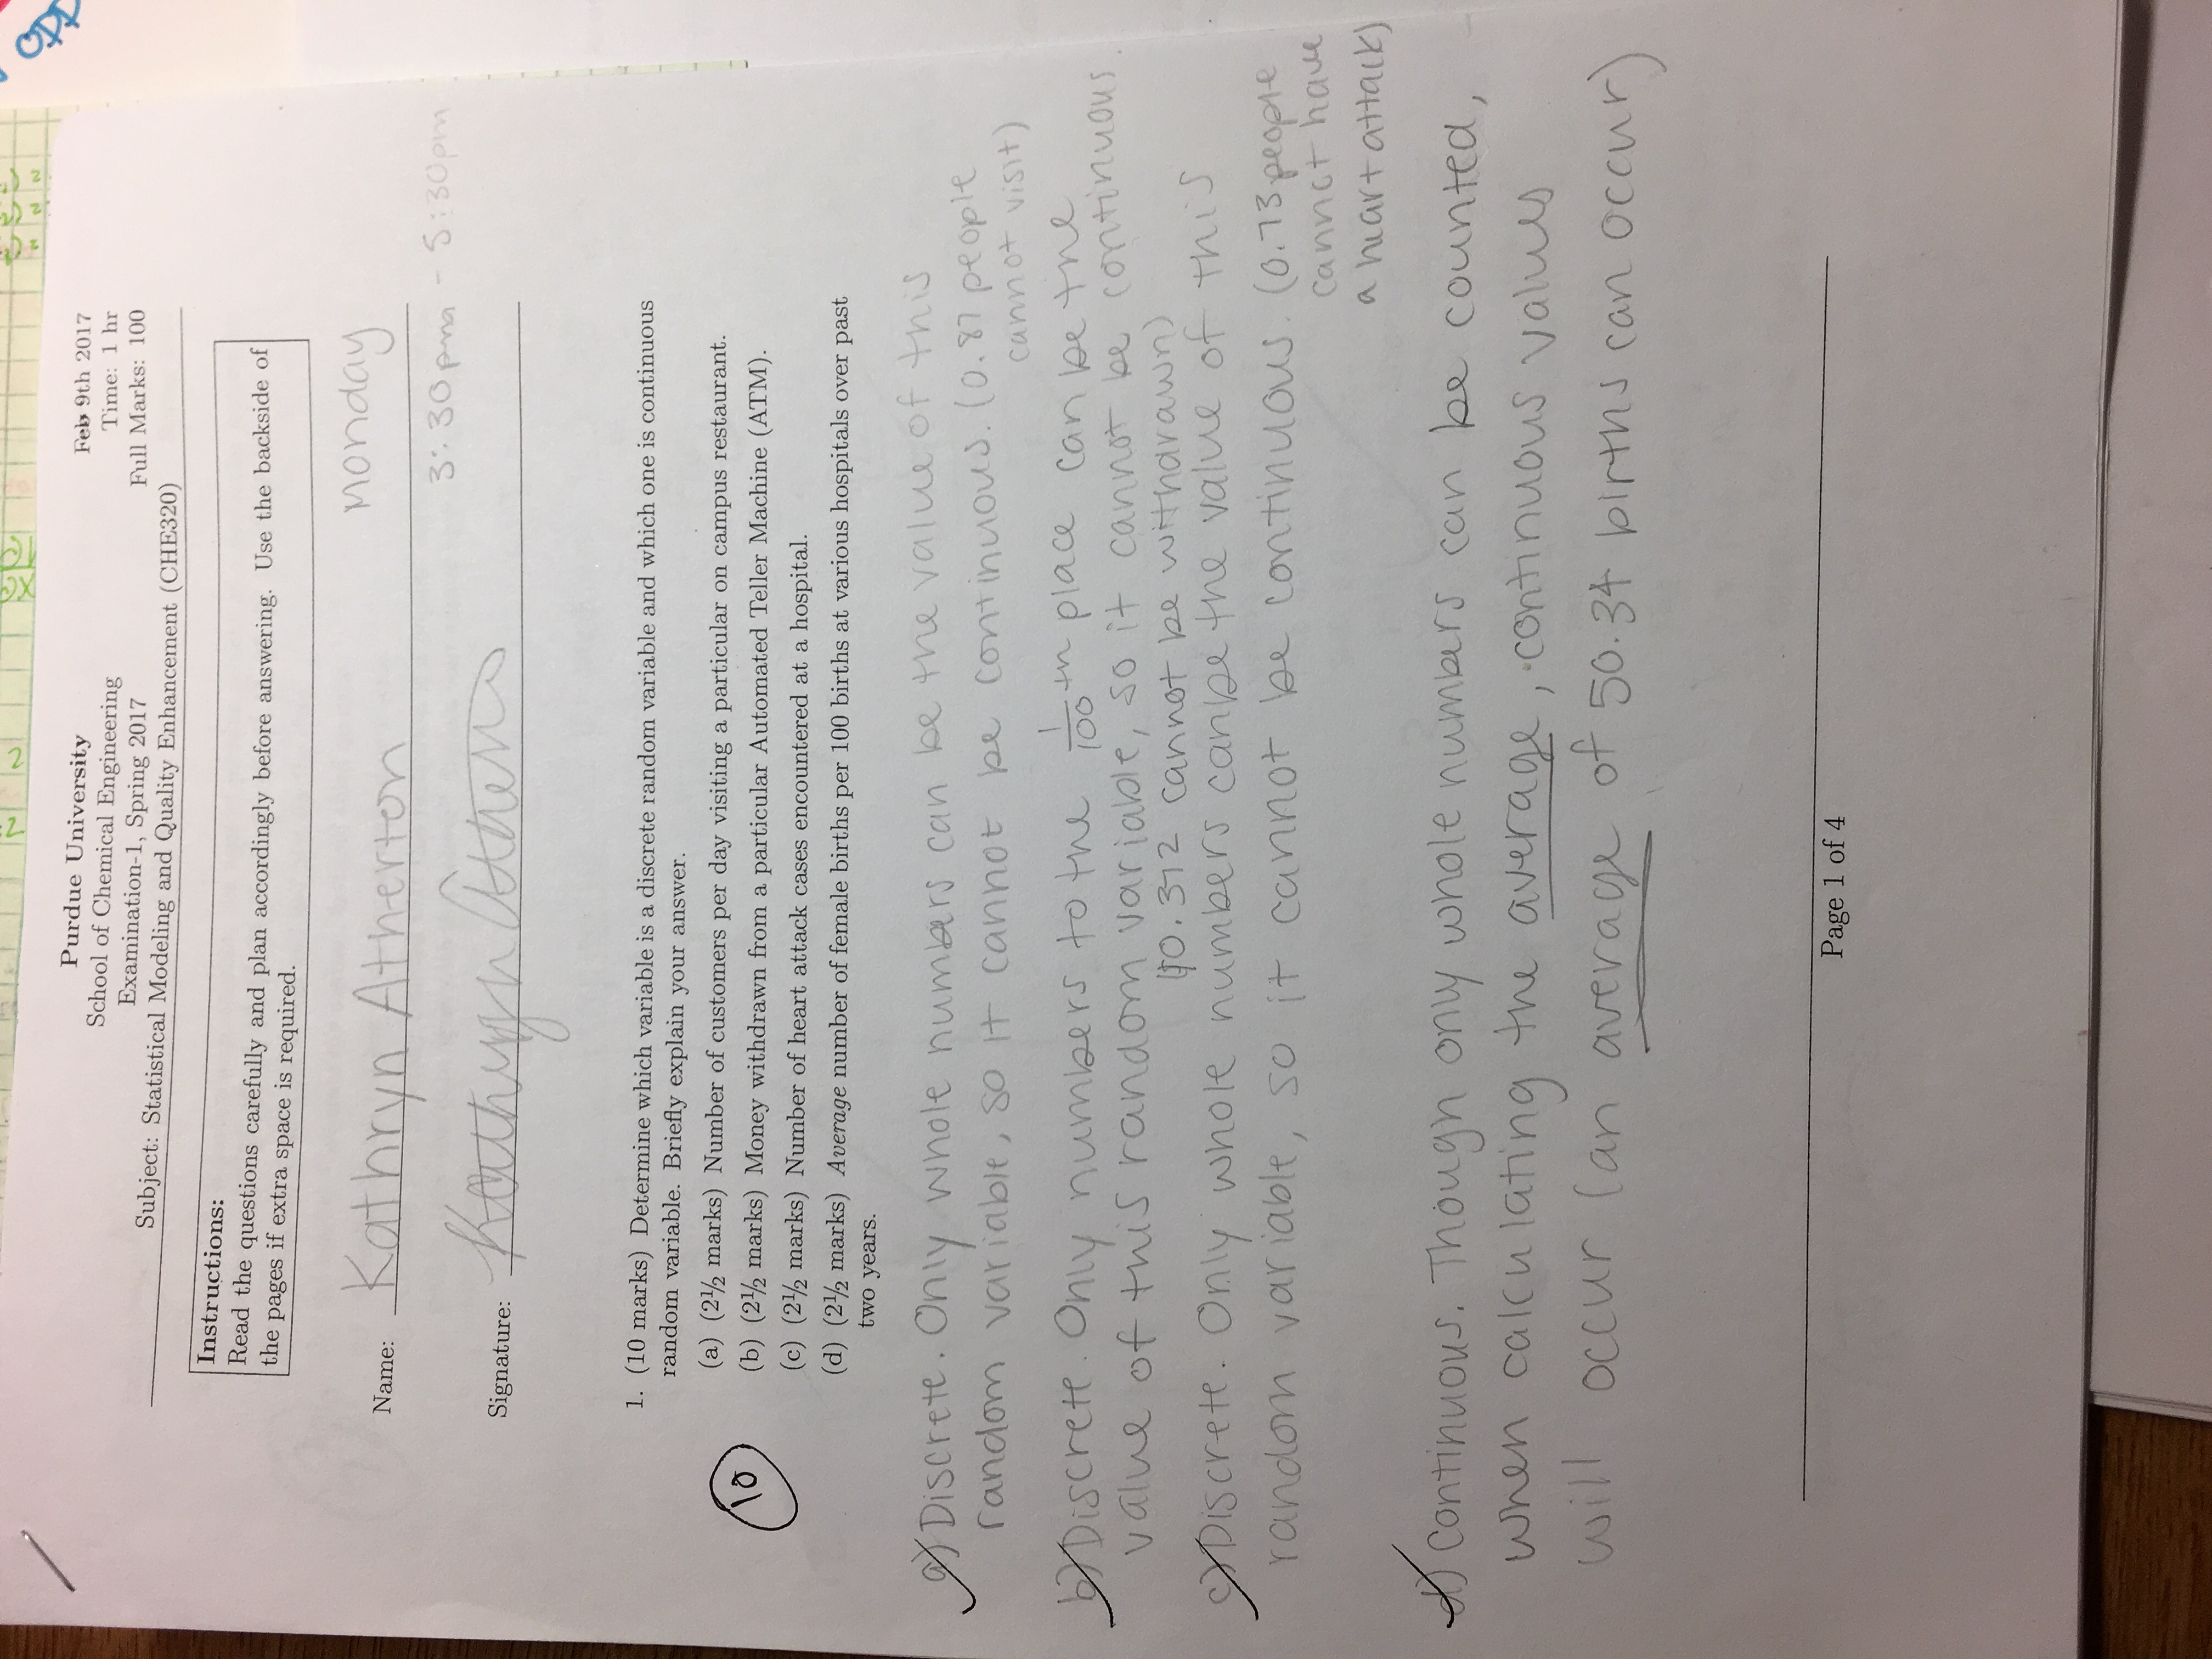 Purdue University
School of Chemical Engineering
Examination-1, Spring 2017
Subject: Statistical Modeling and Quality Enhancement (CHE320)
Feb 9th 2017
Time: 1 hr
Full Marks: 100
Instructions:
Read the questions carefully and plan accordingly before answering. Use the backside of
the pages if extra space is required.
Monday
Name: Kathryn Atherton
3:30pm - 5:30pm
Signature: Kathryn
1. (10 marks) Determine which variable is a discrete random variable and which one is continuous
random variable. Briefly explain your answer.
(a) (2½ marks) Number of customers per day visiting a particular on campus restaurant.
10
(b) (2½ marks) Money withdrawn from a particular Automated Teller Machine (ATM).
(c) (2½ marks) Number of heart attack cases encountered at a hospital.
(d) (2½ marks) Average number of female births per 100 births at various hospitals over past
two years.
a) Discrete. Only whole numbers can be the value of this
random variable, so it cannot be continuous. (0.87 people
cannot visit)
b) Discrete. Only numbers to the 1/100 th place can be the
value of this random variable, so it cannot be continuous.
($0.372 cannot be withdrawn)
c) Discrete. Only whole numbers can be the value of this
random variable, so it cannot be continuous. (0.73 people
cannot have
a heart attack)
d) Continuous. Though only whole numbers can be counted,
when calculating the average, continuous values
will occur (an average of 50.34 births can occur)
Page 1 of 4